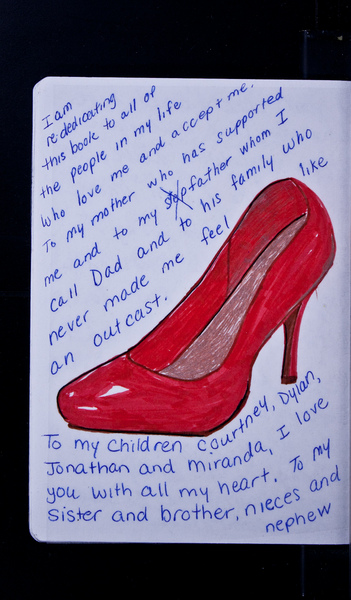 I am
re-dedicating
this book to all of
the people in my life
who love me and accept me.
To my mother who has supported
me and to my stepfather whom I
call Dad and to his family who
never made me feel like
an outcast.
To my children Courtney, Dylan,
Jonathan and Miranda, I love
you with all my heart. To my
sister and brother, nieces and
nephew